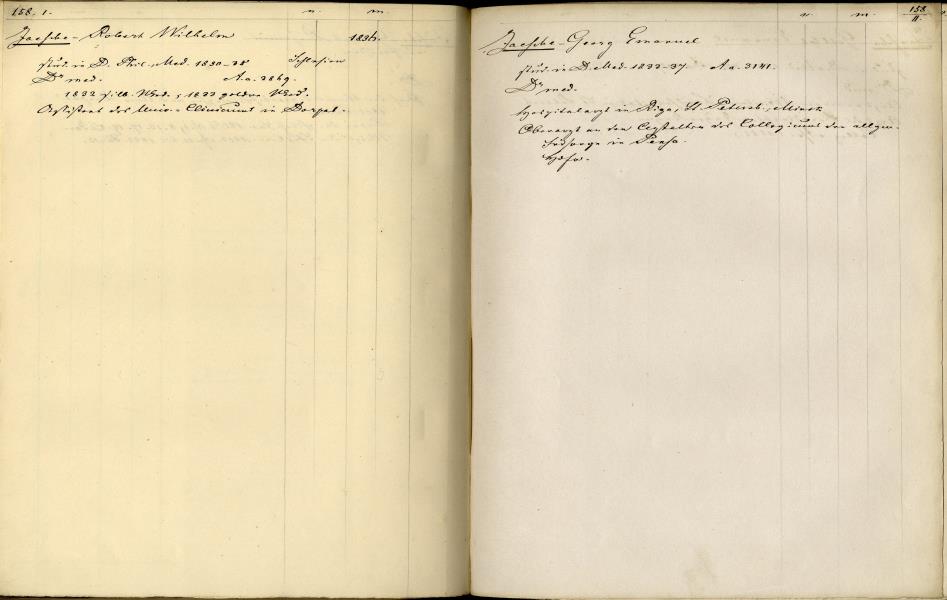 158. I.
n.
m.
Jaesche - Robert Wilhelm
1836.
stud. in D. Phil., Med. 1830-38
Schlesien
Dr med.
A. a. 2869.
1832 silb. Med., 1833 goldne Med.
Assistent des Univ. Clinicums in Dorpat.
n.
m.
158
II.
Jaesche - Georg Emanuel
stud. in D. Med. 1833-37 A. a. 3141.
Dr med.
Hospitalarzt in Riga, St Petersb., Minsk
Oberarzt an den Anstalten des Collegiums der allgem.
Fürsorge in Pensa.